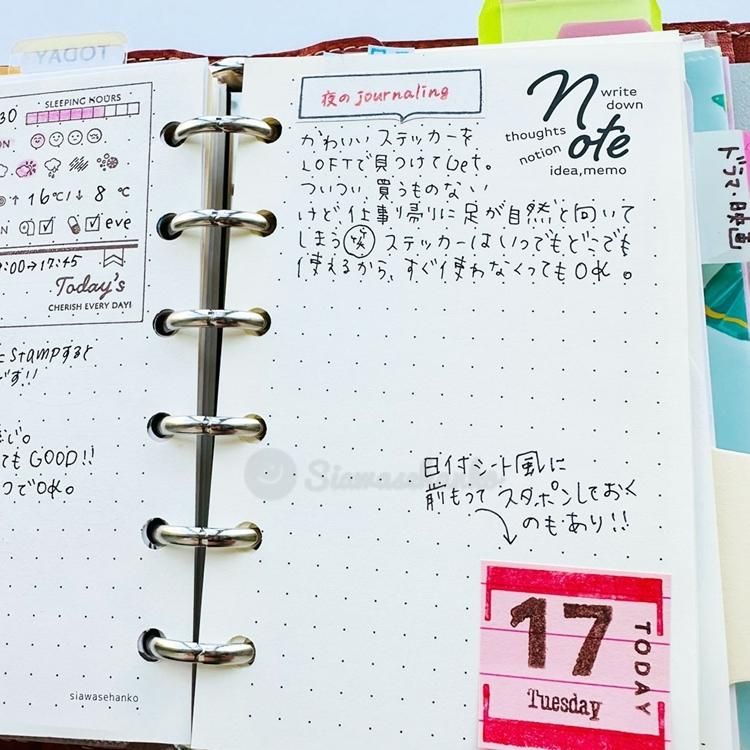 TODAY
30
SLEEPING HOURS
16℃/↓8℃
eve
:00→17:45
Today's
CHERISH EVERY DAY!
stampすると
です!!
もGOOD!!
つでOK。
siawasehanko
夜のjournaling
note
write
down
thoughts
notion
idea,memo
かわいいステッカーを
LOFTで見つけてGet。
ついつい買うものない
けど仕事帰りに足が自然と向いて
しまう(笑)ステッカーはいつでもどこでも
使えるから、すぐ使わなくってもOK。
ドラマ・映画
Siawasehanko
日付シート風に
前もってスタポンしておく
のもあり!!
17
TODAY
Tuesday